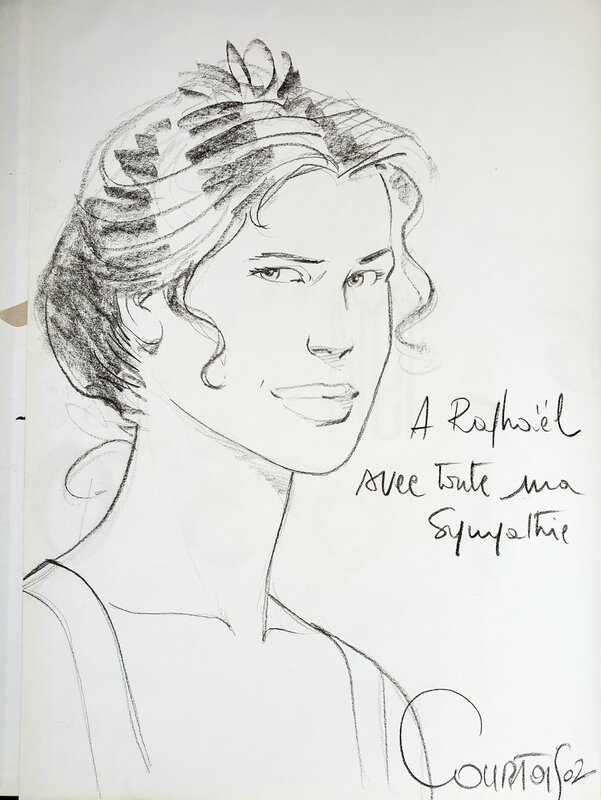 A Raphaël
avec toute ma
Sympathie
COURTOIS 02